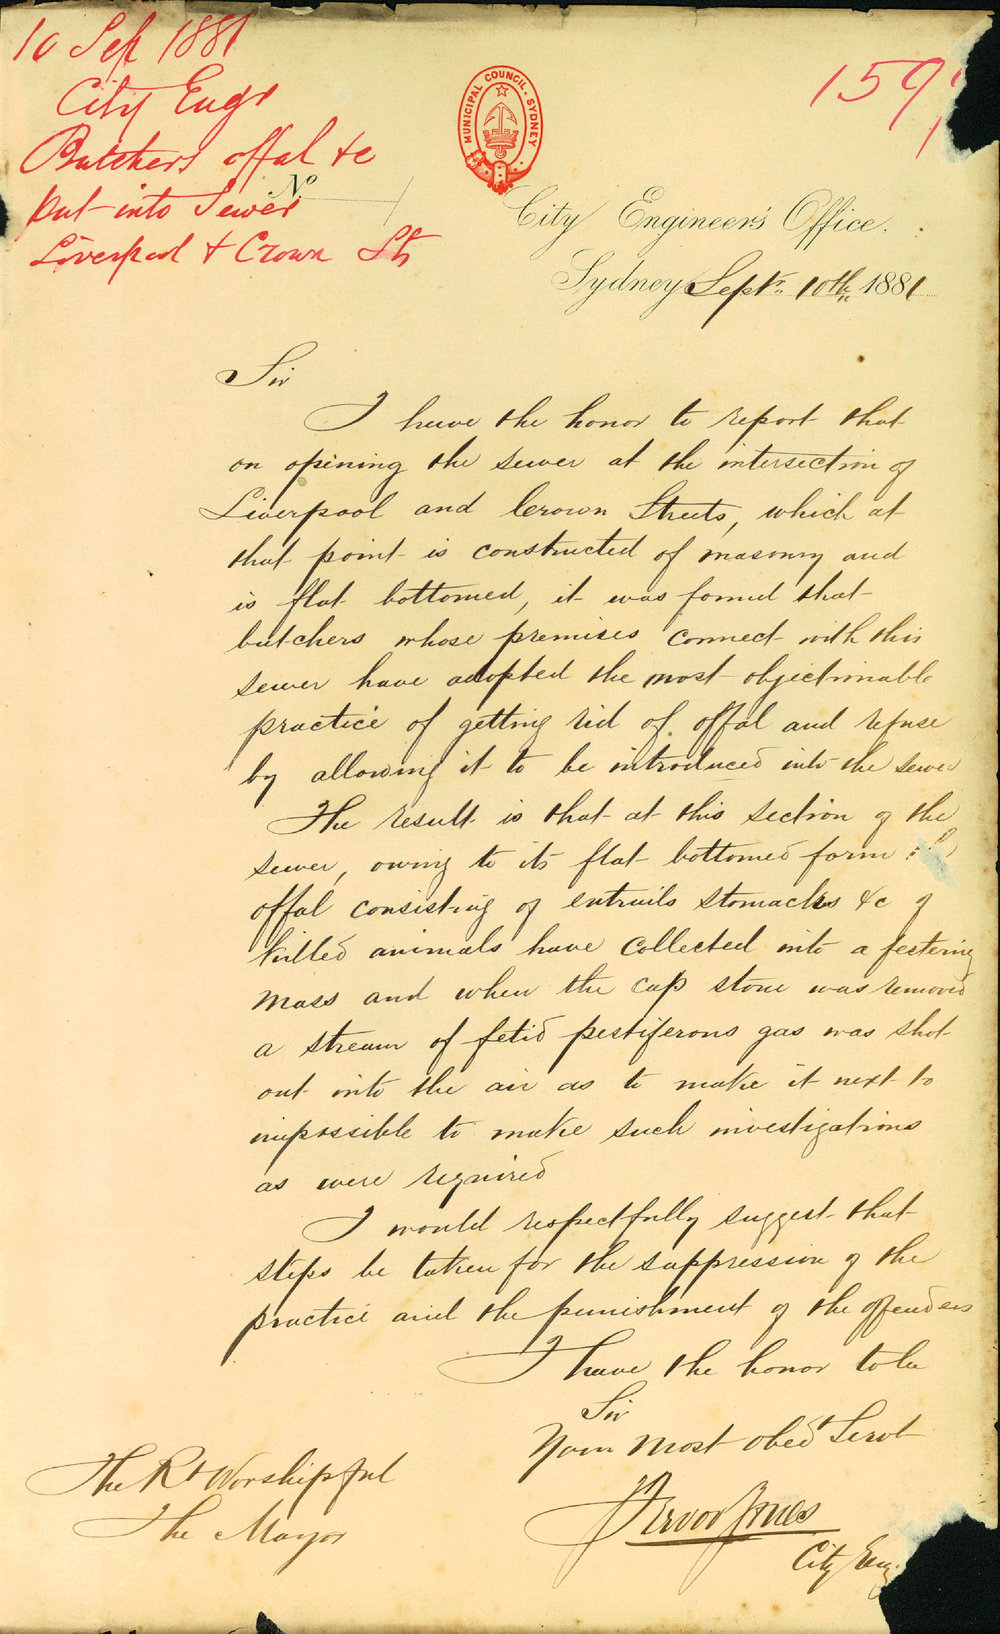 10 Sep 1881
City Engr
Butchers offal &c
put into Sewer
Liverpool & Crown Sts
159
MUNICIPAL COUNCIL. SYDNEY
No
City Engineer's Office.
Sydney Septr. 10th 1881
Sir
I have the honor to report that
on opening the sewer at the intersection of
Liverpool and Crown Streets, which at
that point is constructed of masonry and
is flat bottomed, it was found that
butchers whose premises connect with this
sewer have adopted the most objectionable
practice of getting rid of offal and refuse
by allowing it to be introduced into the sewer
The result is that at this section of the
sewer, owing to its flat bottomed form
offal consisting of entrails stomachs &c of
killed animals have collected into a festering
mass and when the cap stone was removed
a stream of fetid pestiferous gas was shot
out into the air as to make it next to
impossible to make such investigations
as were required
I would respectfully suggest that
steps be taken for the suppression of the
practice and the punishment of the offenders
I have the honor to be
Sir
Your most obedt Servt
Trevor Jones
City Eng
The Rt Worshipful
The Mayor